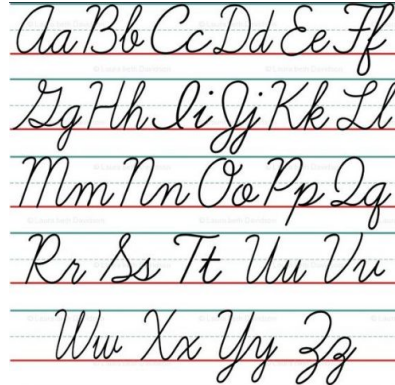 Aa Bb Cc Dd Ee Ff
Gg Hh Ii Jj Kk Ll
Mm Nn Oo Pp Qq
Rr Ss Tt Uu Vv
Ww Xx Yy Zz